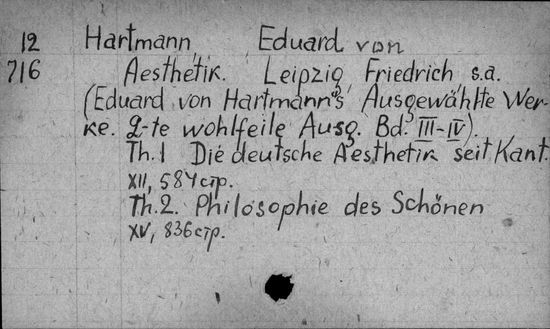 12 Hartmann, Eduard von
716 Aesthetik. Leipzig, Friedrich s.a.
(Eduard von Hartmann's Ausgewählte Wer-
ke. 2-te wohlfeile Ausg. Bd. III-IV).
Th.1 Die deutsche Aesthetik seit Kant.
XII, 584 стр.
Th.2. Philosophie des Schönen
XV, 836 стр.